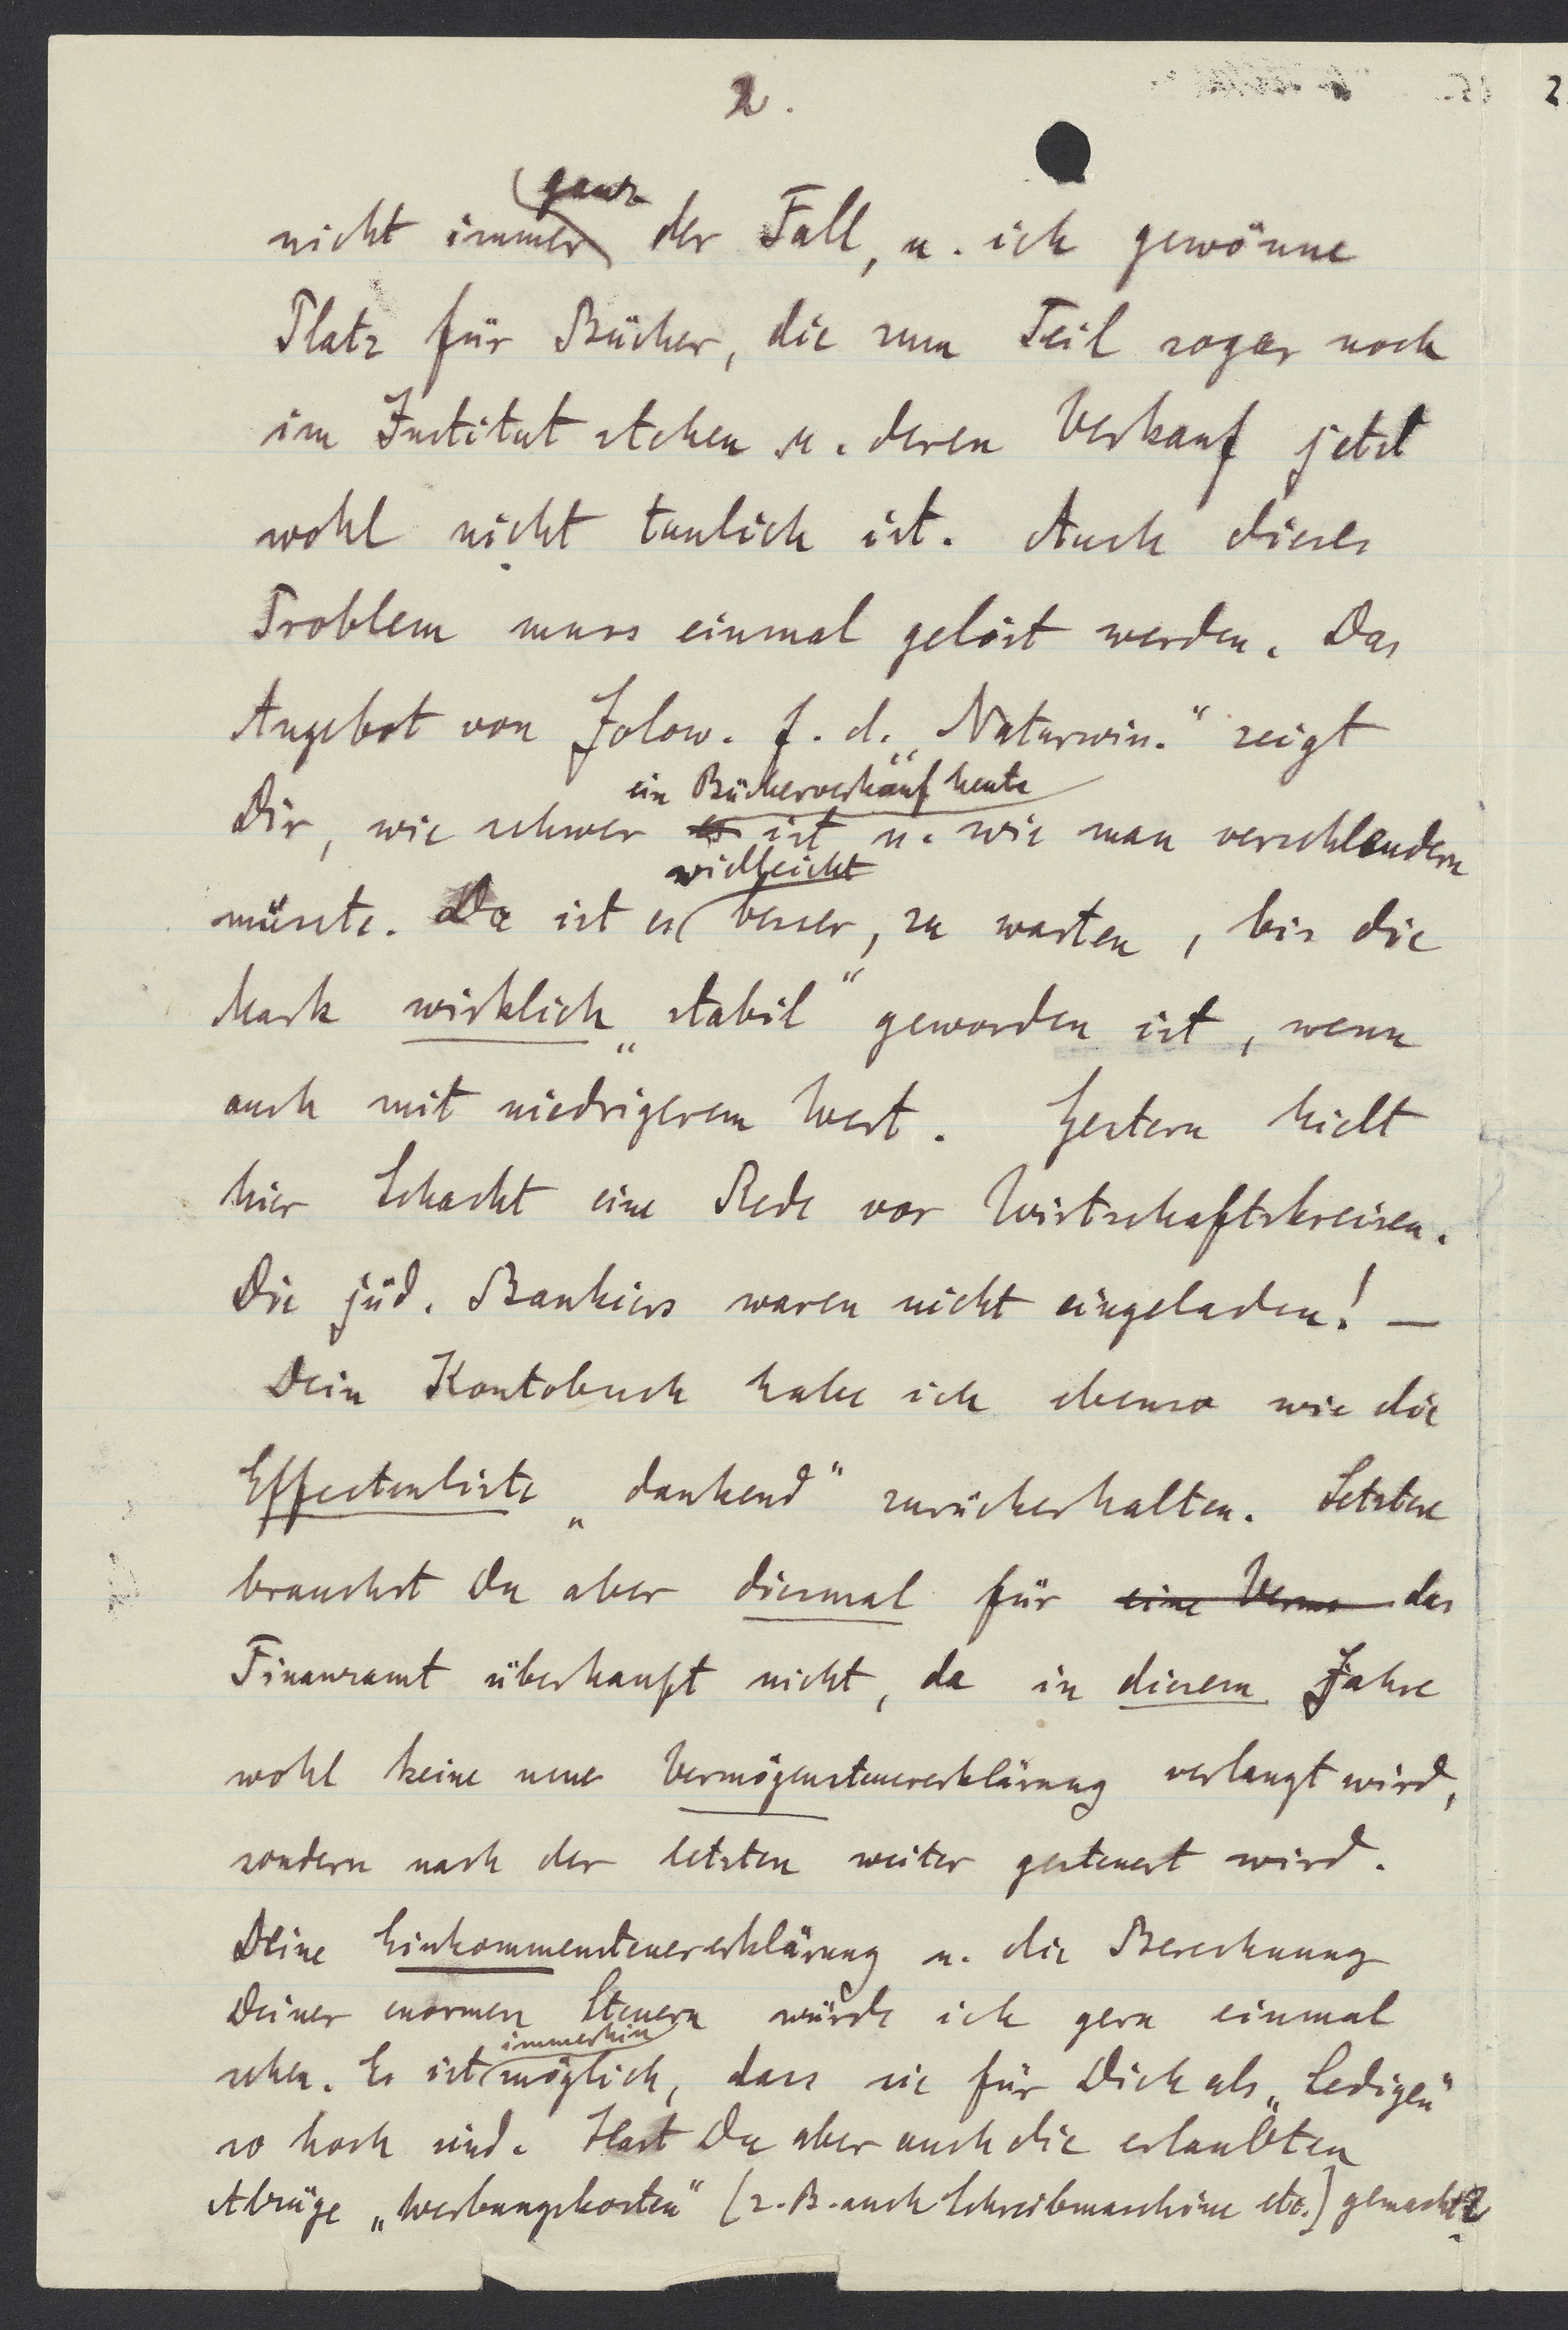 2.
nicht immer ganz der Fall, u. ich gewönne
Platz für Bücher, die zum Teil sogar noch
im Institut stehen u. deren Verkauf jetzt
wohl nicht tunlich ist. Auch dieses
Problem muss einmal gelöst werden. Das
Angebot von Jolow. f. d. „Naturwiss." zeigt
ein Bücherverkauf heute
Dir, wie schwer es ist u. wie man verschleudern
vielleicht
müsste. Da ist es besser, zu warten, bis die
Mark wirklich „stabil" geworden ist, wenn
auch mit niedrigerem Wert. Gestern hielt
hier Schacht eine Rede vor Wirtschaftskreisen.
Die jüd. Bankiers waren nicht eingeladen! —
Dein Kontobuch habe ich ebenso wie die
Effectenliste „dankend" zurückerhalten. Letztere
brauchst Du aber diesmal für eine Vermö das
Finanzamt überhaupt nicht, da in diesem Jahre
wohl keine neue Vermögensteuererklärung verlangt wird,
sondern nach der letzten weiter gesteuert wird.
Deine Einkommensteuererklärung u. die Berechnung
Deiner enormen Steuern würde ich gern einmal
immerhin
sehen. Es ist möglich, dass sie für Dich als „Ledigen"
so hoch sind. Hast Du aber auch die erlaubten
Abzüge „Werbungskosten" [z. B. auch Schreibmaschine etc.] gemacht?
2